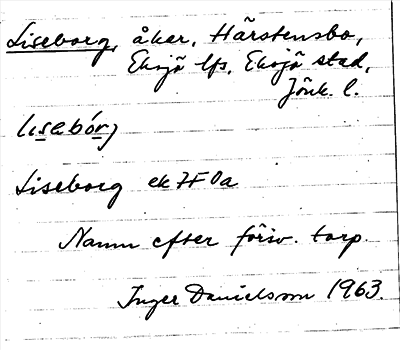 Liseborg, åker, Härstensbo,
Eksjö lfs, Eksjö stad,
Jönk. l.
lisebórj
Liseborg ek 7F0a
Namn efter försv. torp.
Inger Danielsson 1963.